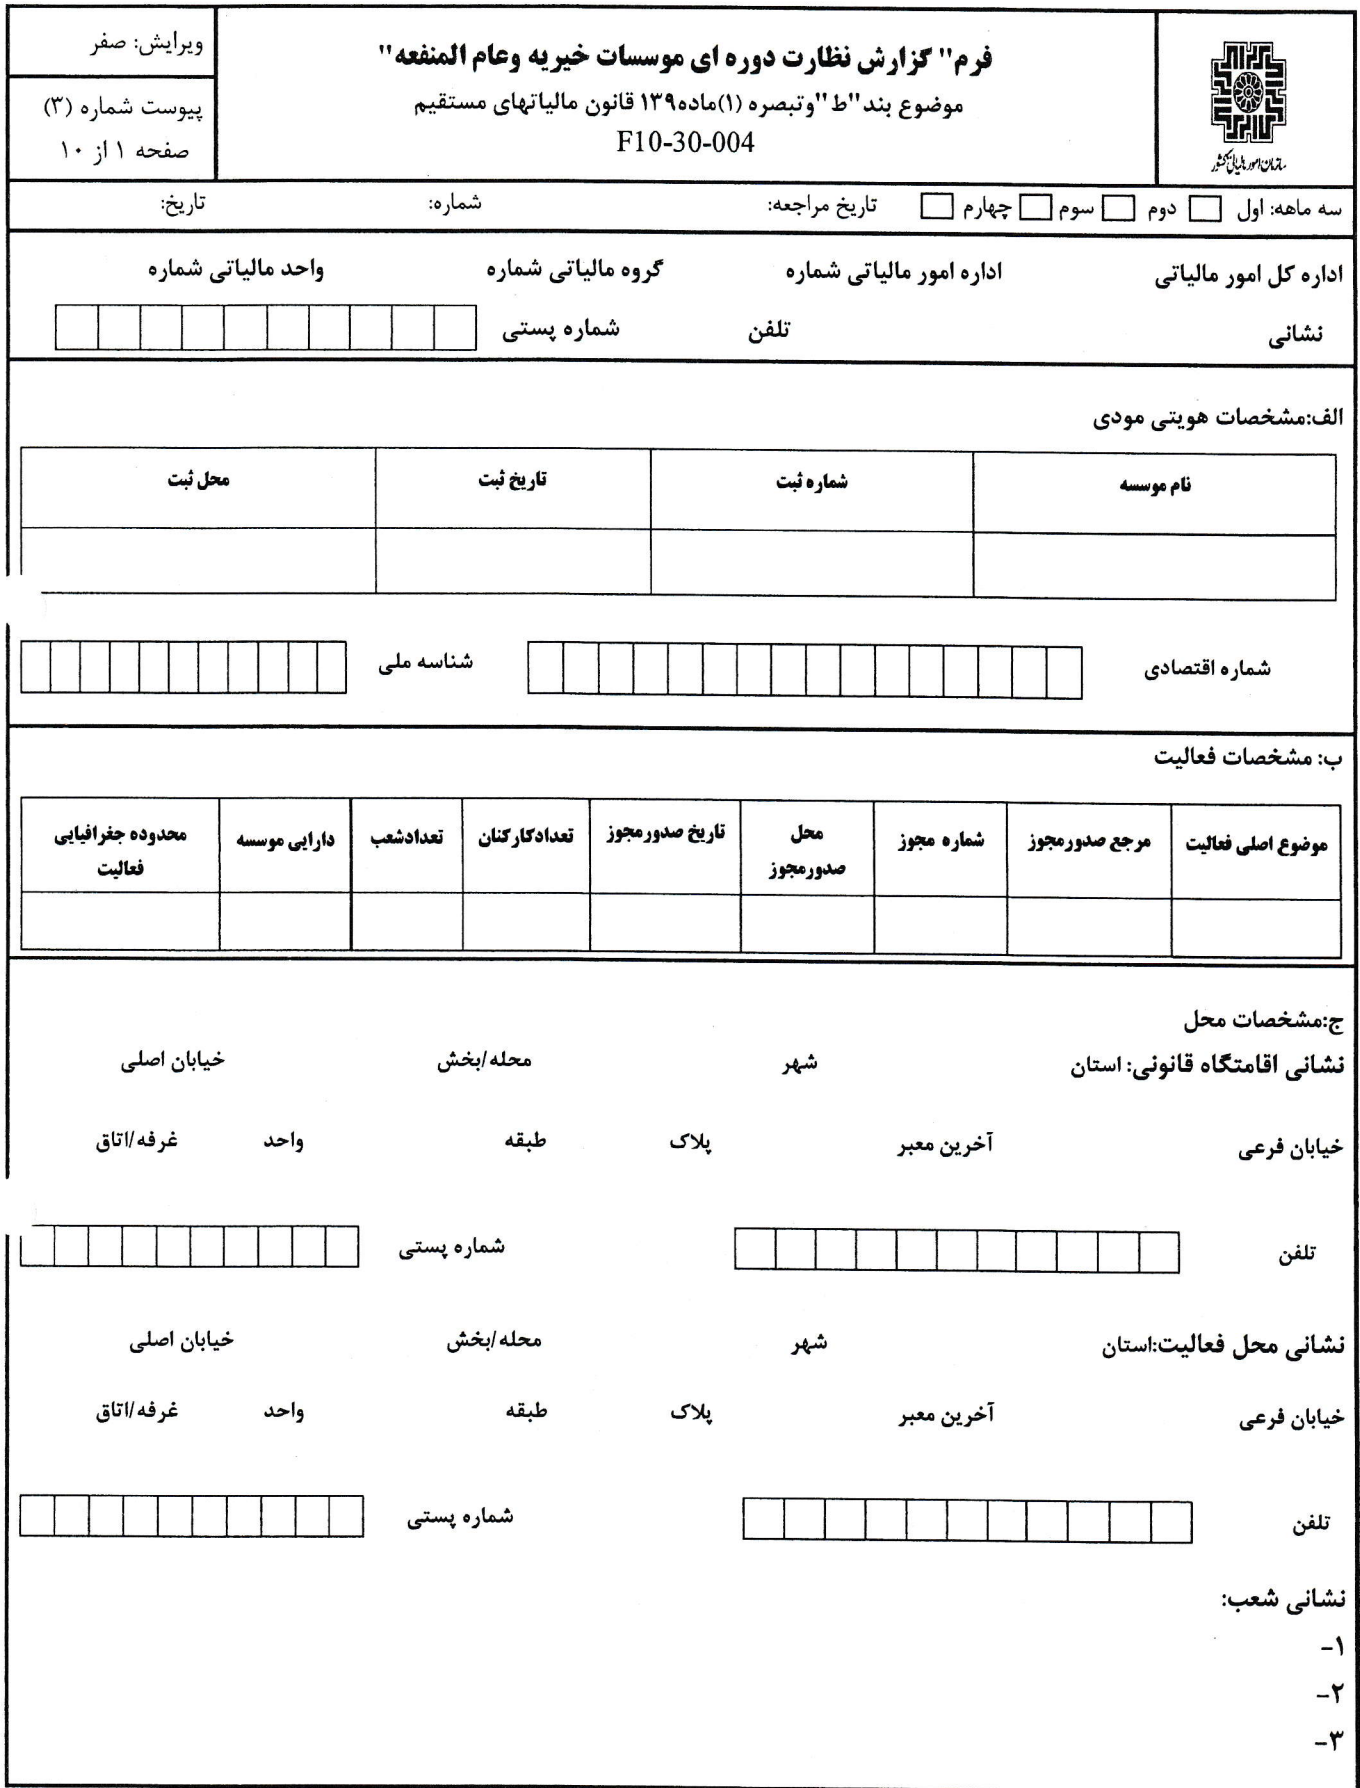 ویرایش: صفر
پیوست شماره (۳)
صفحه ۱ از ۱۰
فرم" گزارش نظارت دوره ای موسسات خیریه وعام المنفعه"
موضوع بند"ط"وتبصره (۱)ماده۱۳۹ قانون مالیاتهای مستقیم
F10-30-004
سازمان امور مالیاتی کشور
سه ماهه: اول دوم سوم چهارم تاریخ مراجعه: شماره: تاریخ:
اداره کل امور مالیاتی اداره امور مالیاتی شماره گروه مالیاتی شماره واحد مالیاتی شماره
نشانی تلفن شماره پستی
الف:مشخصات هویتی مودی
نام موسسه شماره ثبت تاریخ ثبت محل ثبت
شماره اقتصادی شناسه ملی
ب: مشخصات فعالیت
موضوع اصلی فعالیت مرجع صدورمجوز شماره مجوز محل صدورمجوز تاریخ صدورمجوز تعدادکارکنان تعدادشعب دارایی موسسه محدوده جغرافیایی فعالیت
ج:مشخصات محل
نشانی اقامتگاه قانونی: استان شهر محله/بخش خیابان اصلی
خیابان فرعی آخرین معبر پلاک طبقه واحد غرفه/اتاق
تلفن شماره پستی
نشانی محل فعالیت:استان شهر محله/بخش خیابان اصلی
خیابان فرعی آخرین معبر پلاک طبقه واحد غرفه/اتاق
تلفن شماره پستی
نشانی شعب:
۱-
۲-
۳-